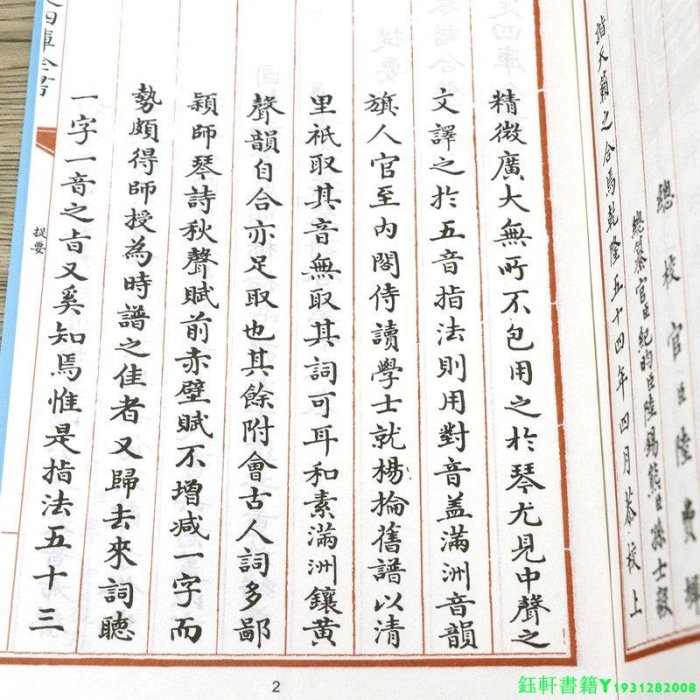 四庫全書
提要
一字一音之㫖又奚知焉惟是指法五十三
勢頗得師授為時譜之佳者又歸去來詞聽
穎師琴詩秋聲賦前赤壁賦不增減一字而
聲韻自合亦足取也其餘附會古人詞多鄙
里祇取其音無取其詞可耳和素滿洲鑲黄
旗人官至内閣侍讀學士就楊掄舊譜以清
文譯之於五音指法則用對音盖滿洲音韻
精微廣大無所不包用之於琴尤見中聲之
2
指天籟之合焉乾隆五十四年四月恭校上
總纂官臣紀昀臣陸錫熊臣孫士毅
總校官臣陸費墀
鈺軒書籍Y1931282008